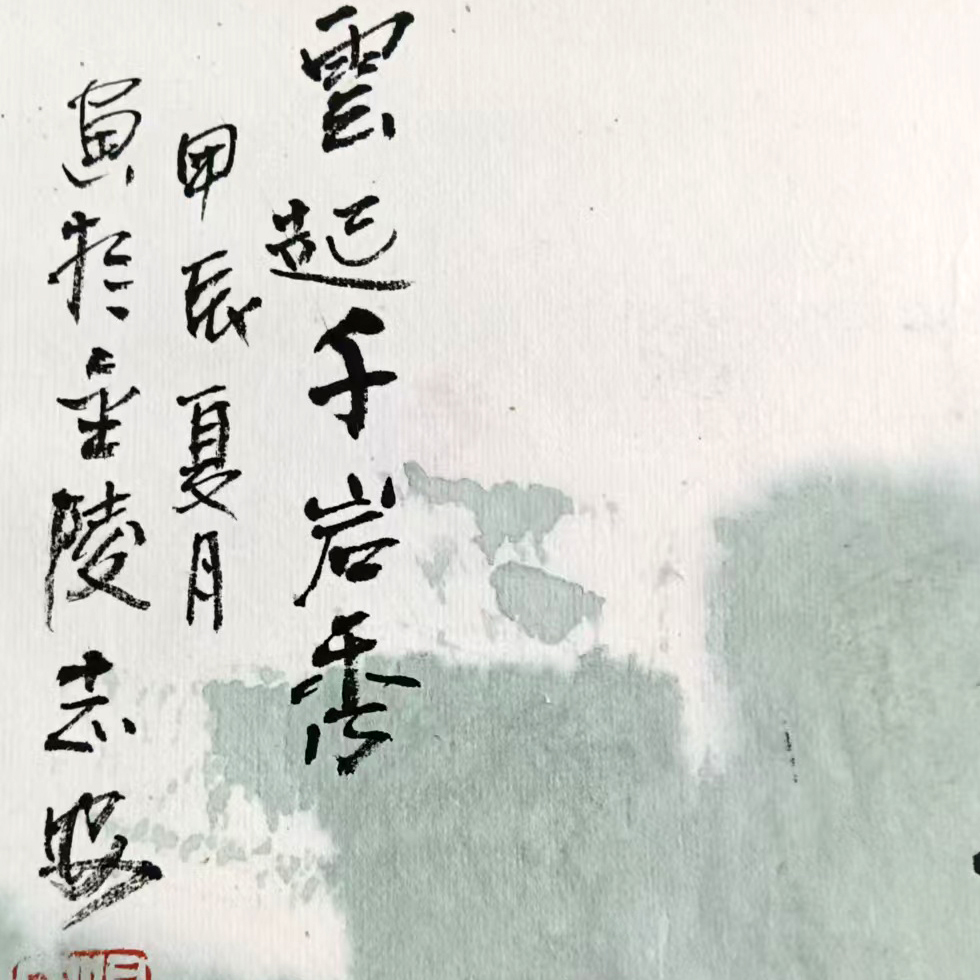 雲起千岩秀
甲辰夏月
寅於金陵志